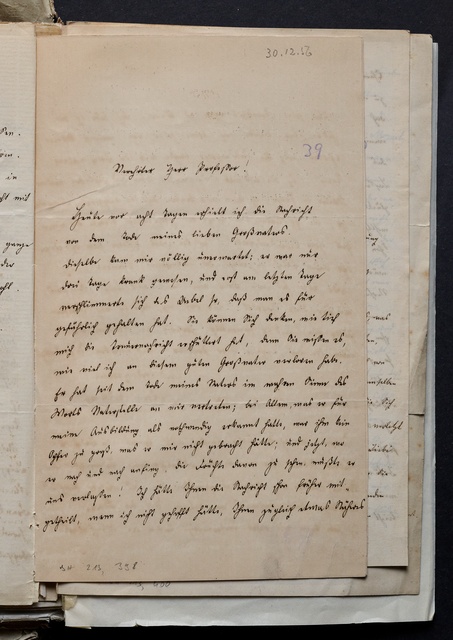 30.12.56
39
Verehrter Herr Professor!
Heute vor acht Tagen erhielt ich die Nachricht
von dem Tode meines lieben Großvaters.
Dieselbe kam mir völlig unerwartet; er war nur
drei Tage krank gewesen, und erst am letzten Tage
verschlimmerte sich das Uebel so, daß man es für
gefährlich gehalten hat. Sie können Sich denken, wie tief
mich die Trauernachricht erschüttert hat, denn Sie wissen es,
wie viel ich an diesem guten Großvater verloren habe.
Er hat seit dem Tode meines Vaters im wahren Sinne des
Worts Vaterstelle an mir vertreten; bei Allem, was er für
meine Ausbildung als nothwendig erkannt hatte, war ihm kein
Opfer zu groß, was er mir nicht gebracht hätte; und jetzt, wo
er nach und nach anfing, die Früchte davon zu sehen, mußte er
uns verlassen! Ich hätte Ihnen die Nachricht schon früher mit-
getheilt, wenn ich nicht gehofft hätte, Ihnen zugleich etwas Näheres